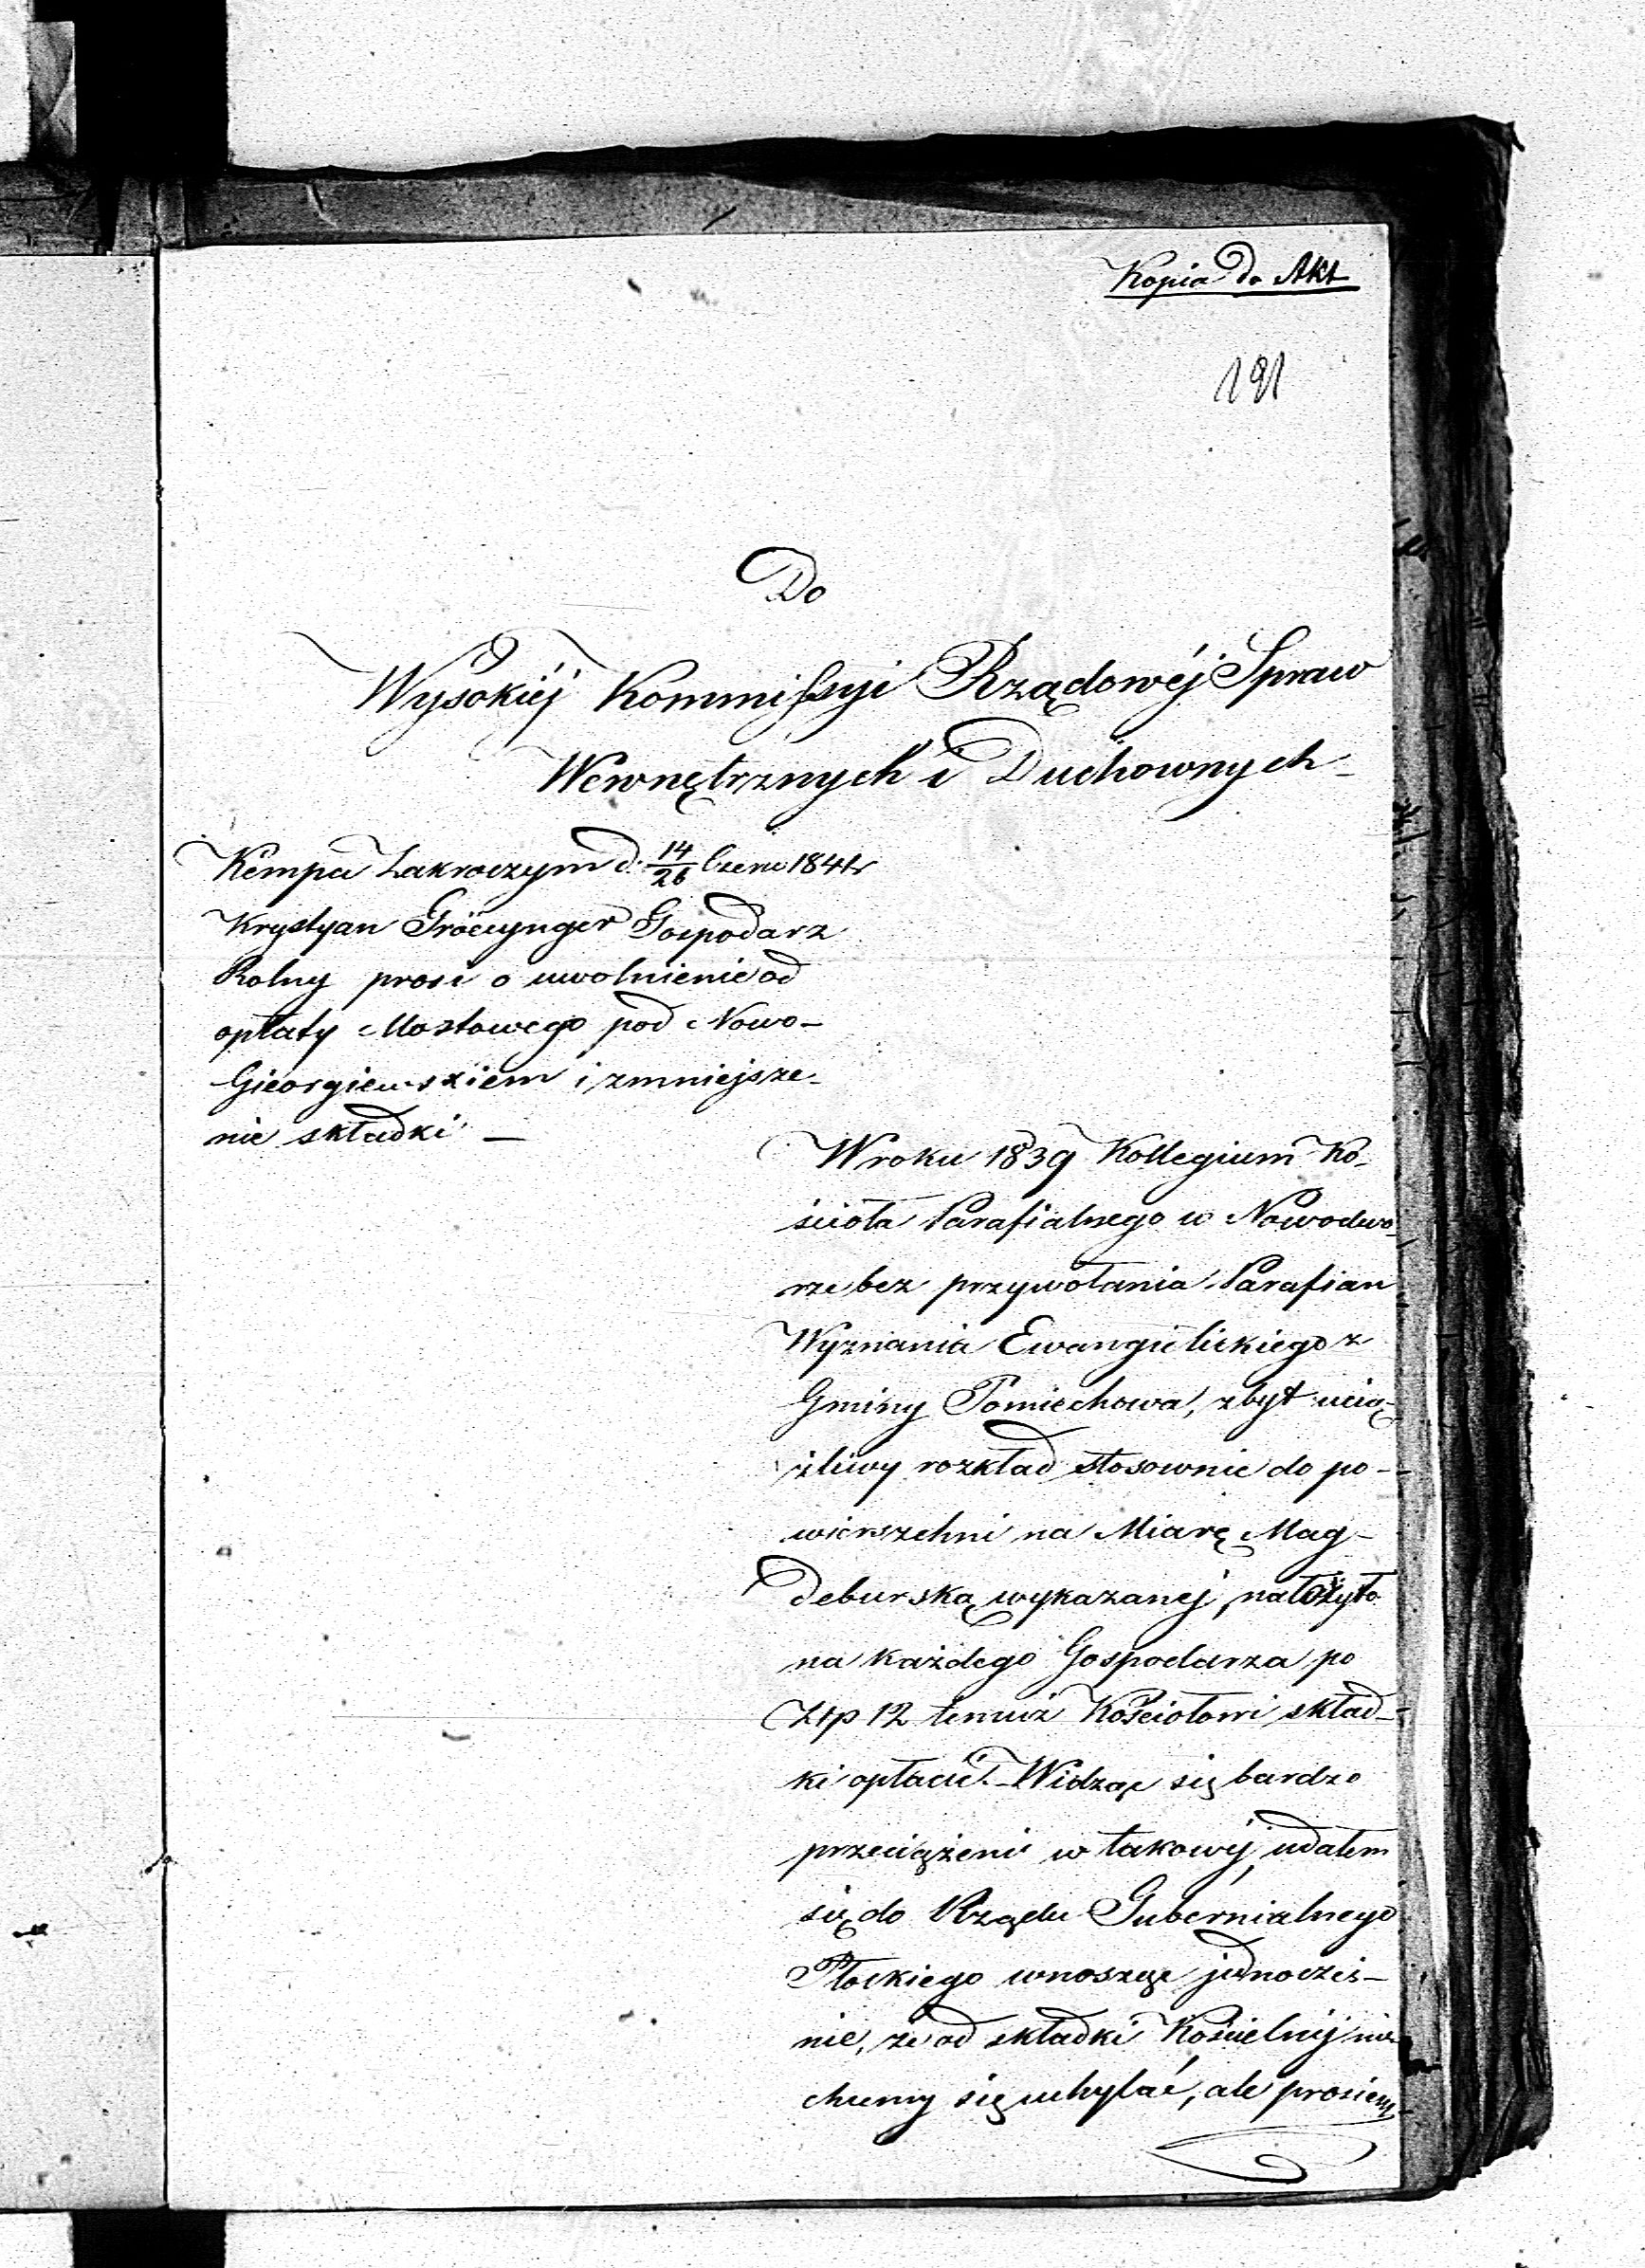 Kopia do Akt
191
Do
Wysokiéj Kommissyi Rządowéj Spraw
Wewnętrznych i Duchownych
Kempa Zakroczym d. 14/26 Czerw 1841r
Krystyan Gospodarz
Rolny prosi o uwolnienie od
opłaty Mostowego pod Nowo-
Gieorgiewskiem i zmniejsze-
nie składki –
W roku 1839 Kollegium Ko-
ścioła Parafialnego w Nowodwo-
rze bez przywołania Parafian
Wyznania Ewangielickiego z
Gminy Pomiechowa, zbyt ucią-
żliwy rozkład stosownie do po-
wierszchni na Miarę Mag-
deburską wykazanej, nałożyło
na każdego Gospodarza po
Złp 12 temuż Kościołowi skład-
ki opłacić. – Widząc się bardzo
przeciążeni w takowéj, udałem
się do Rządu Gubernialnego
Płockiego wnosząc jednocześ-
nie, że od składki Kościelnéj nie
chcemy się uchylać, ale prosiem